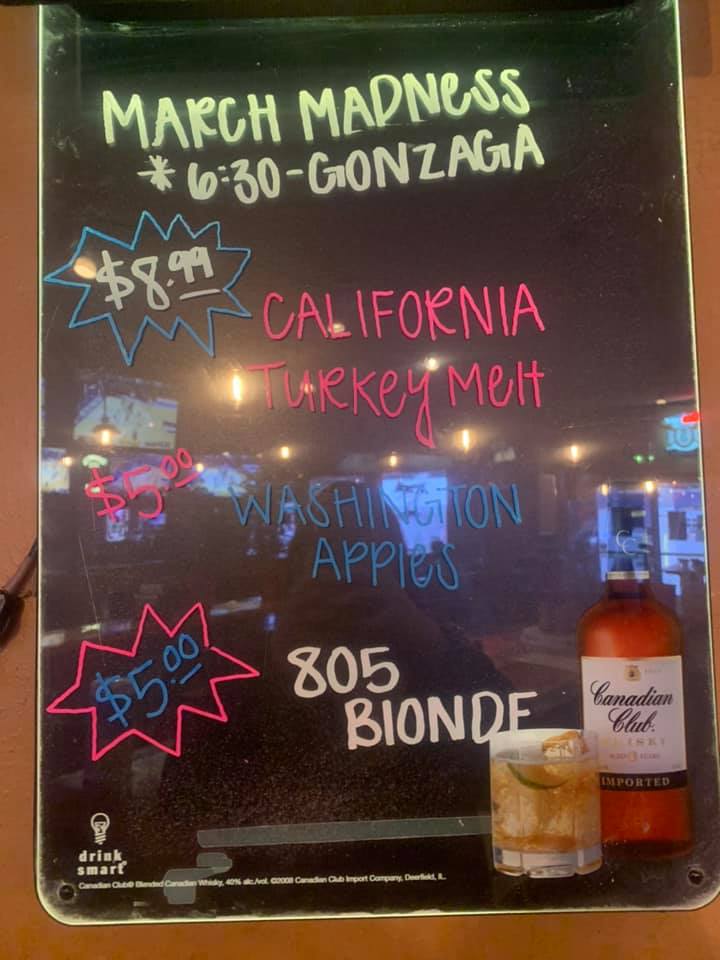 MARCH MADNESS
* 6:30-GONZAGA
$8.99
CALIFORNIA
TURKEY MELT
$5.00
WASHINGTON
APPLES
$5.00
805
BLONDE
Canadian
Club.
WHISKY
IMPORTED
drink
smart
Canadian Club® Blended Canadian Whisky, 40% alc./vol. ©2008 Canadian Club Import Company, Deerfield, IL.